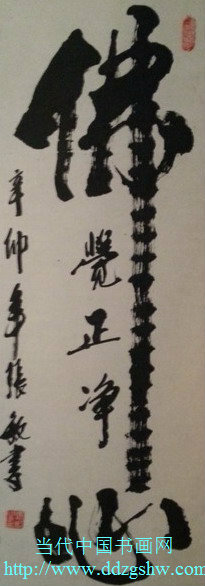 佛心
覺正净
辛卯年張敏書
当代中国书画网
http://www.ddzgshw.com/